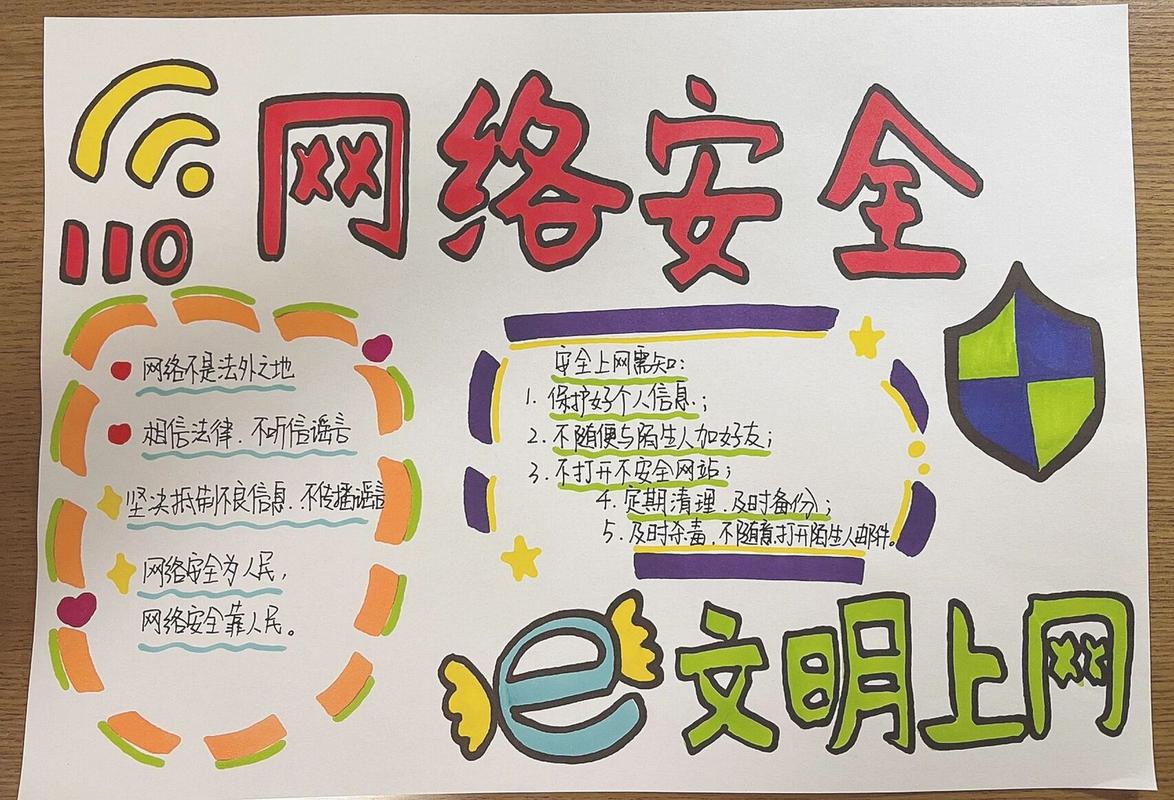 网络安全
110
网络不是法外之地
相信法律.不听信谣言
坚决抵制不良信息.不传播谣言
网络安全为人民,
网络安全靠人民。
安全上网需知:
1.保护好个人信息.;
2.不随便与陌生人加好友;
3.不打开不安全网站;
4.定期清理.及时备份;
5.及时杀毒.不随意打开陌生人邮件。
e
文明上网